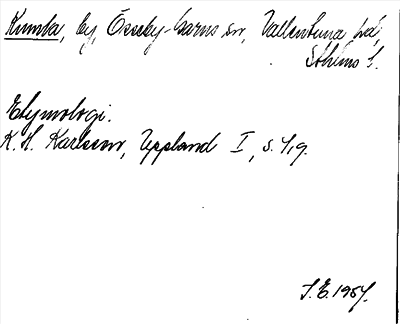 Kumla, by, Össeby-Garns sn, Vallentuna hd,
Sthlms l.
Etymologi.
K. H. Karlsson, Uppland I, s. 419.
S.E. 1957.